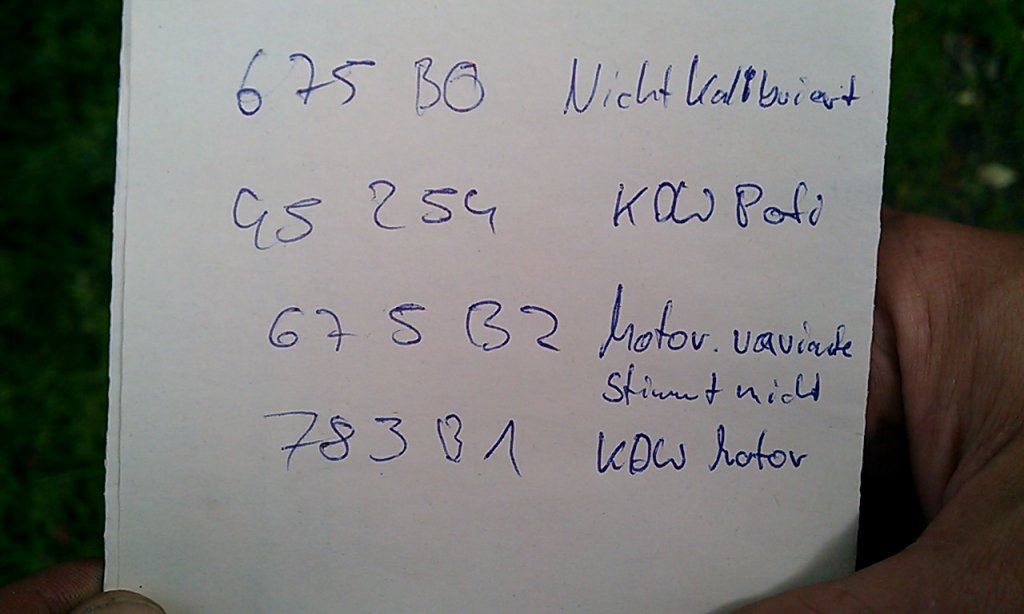 675 B0 Nicht Kalibriert
45 254 KDW Poti
675 B2 Motor. variante
stimmt nicht
783 B1 KDW Motor